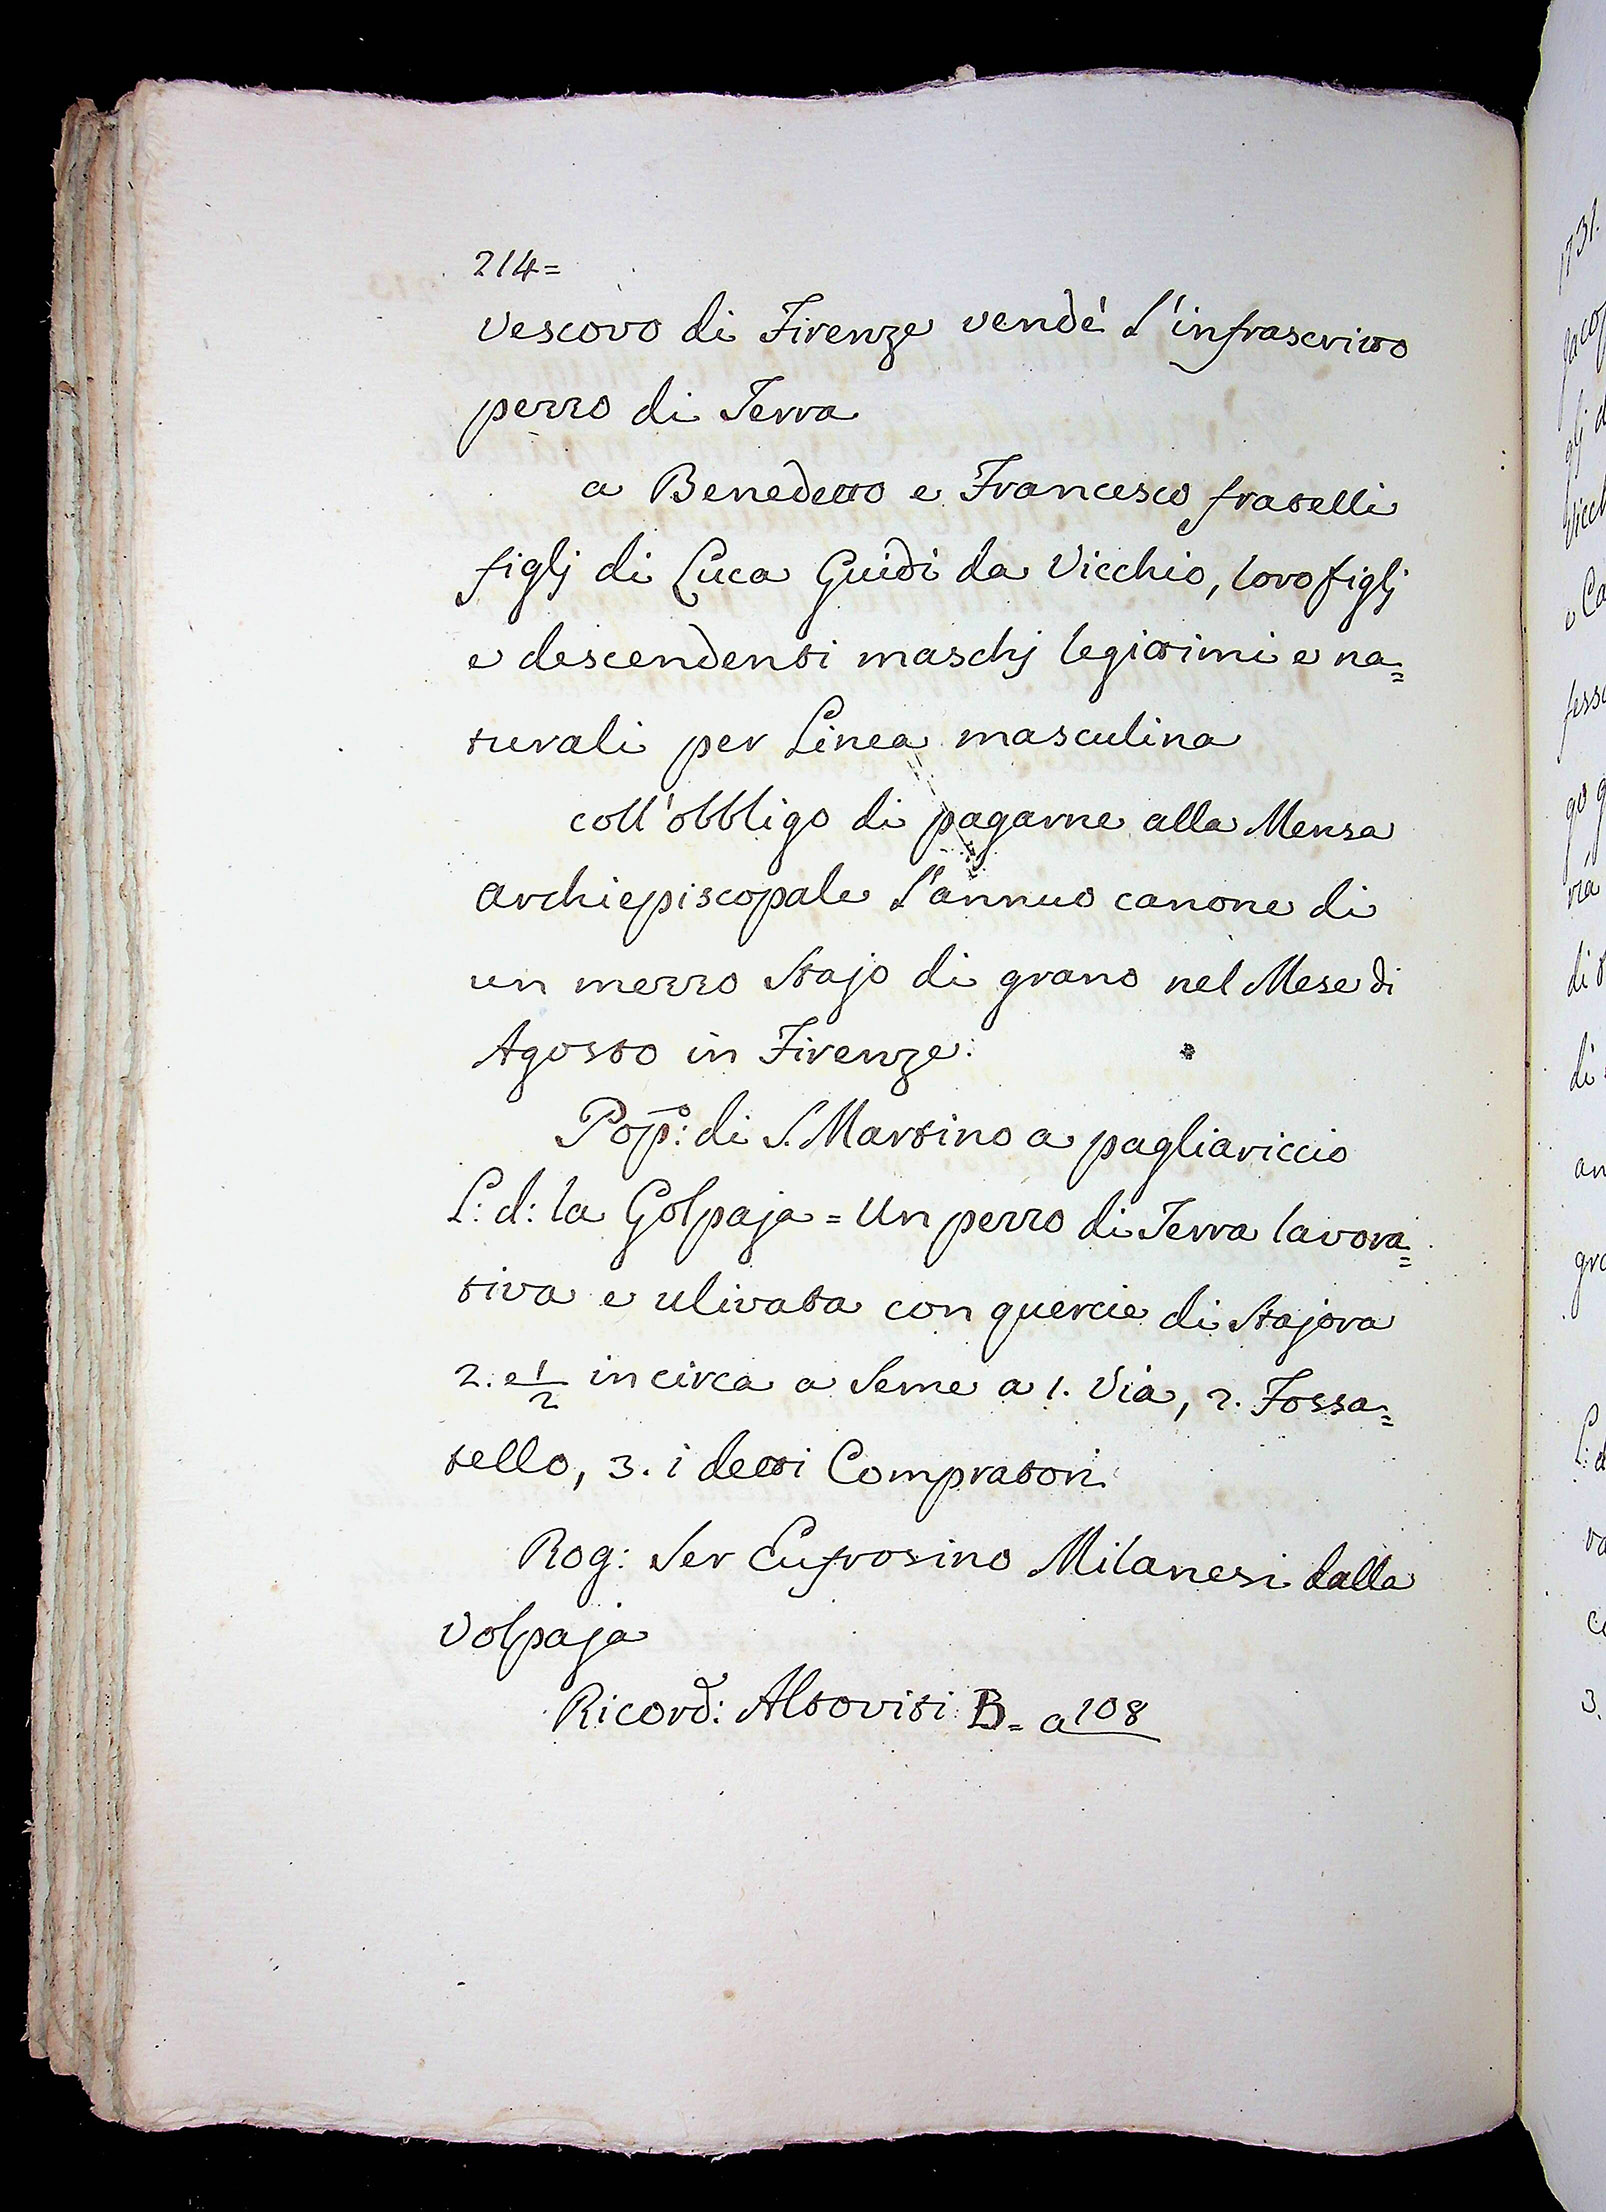 214=
Vescovo di Firenze vendé l'infrascritto
pezzo di Terra
a Benedetto e Francesco fratelli
figlj di Luca Guidi da Vicchio, loro figlj
e descendenti maschj legittimi e na=
turali per Linea masculina
coll'obbligo di pagarne alla Mensa
Archiepiscopale l'annuo canone di
un mezzo Stajo di grano nel Mese di
Agosto in Firenze.
Pop̄o: di S. Martino a pagliariccio
L: d: la Golpaja = Un pezzo di Terra lavora=
tiva e ulivata con quercie di Stajora
2. e 1/2 in circa a Seme a 1. Via, 2. Fossa=
tello, 3. i detti Compratori
Rog: Ser Eufrosino Milanesi dalla
Volpaja
Ricord: Altoviti B= a 108